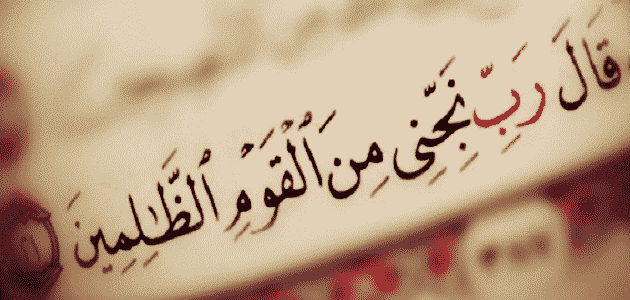 قَالَ رَبِّ نَجِّنِى مِنَ ٱلْقَوْمِ ٱلظَّـٰلِمِينَ